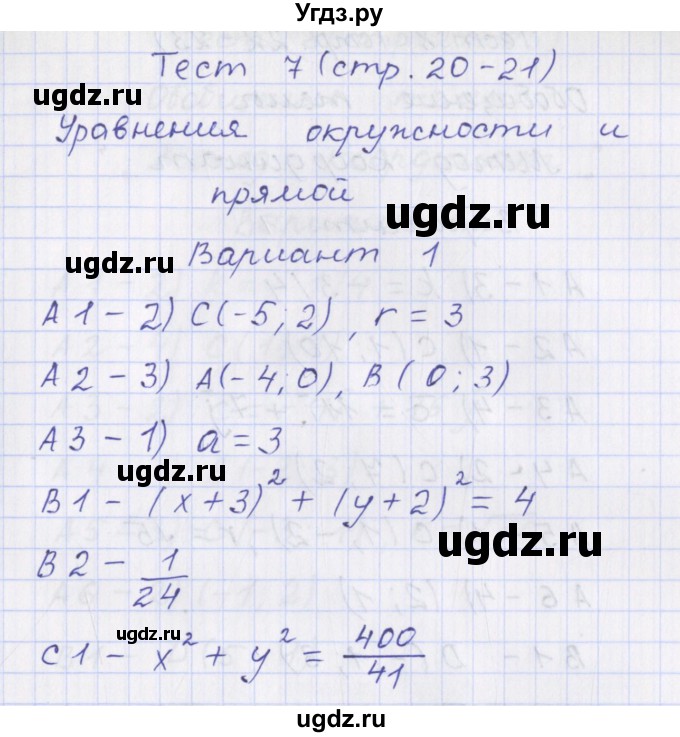 Угдз.ру
Тест 7 (стр. 20-21)
ugdz.ru
Уравнения окружности и
прямой
ugdz.ru
ugdz.ru
Вариант 1
A1 - 2) C(-5; 2), r = 3
ugdz.ru
A2 - 3) A(-4; 0), B(0; 3)
A3 - 1) a = 3
ugdz.ru
B1 - (x+3)² + (y+2)² = 4
ugdz.ru
B2 - 1/24
ugdz.ru
C1 - x² + y² = 400/41
ugdz.ru
ugdz.ru